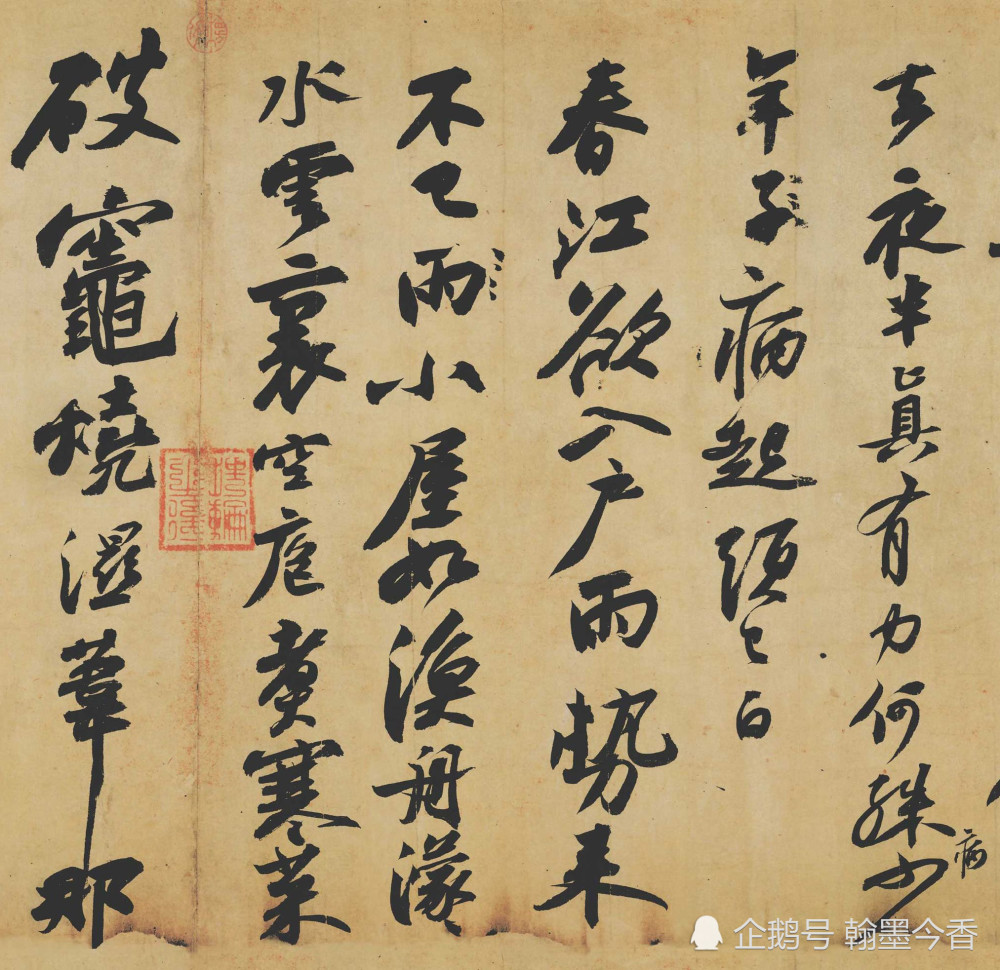 去夜半眞有力何殊少
病
年子病起頭已白
春江欲入戶雨勢來
不已雨小屋如漁舟濛
水雲裏空庖煮寒菜
破竈燒濕葦那
企鹅号 翰墨今香